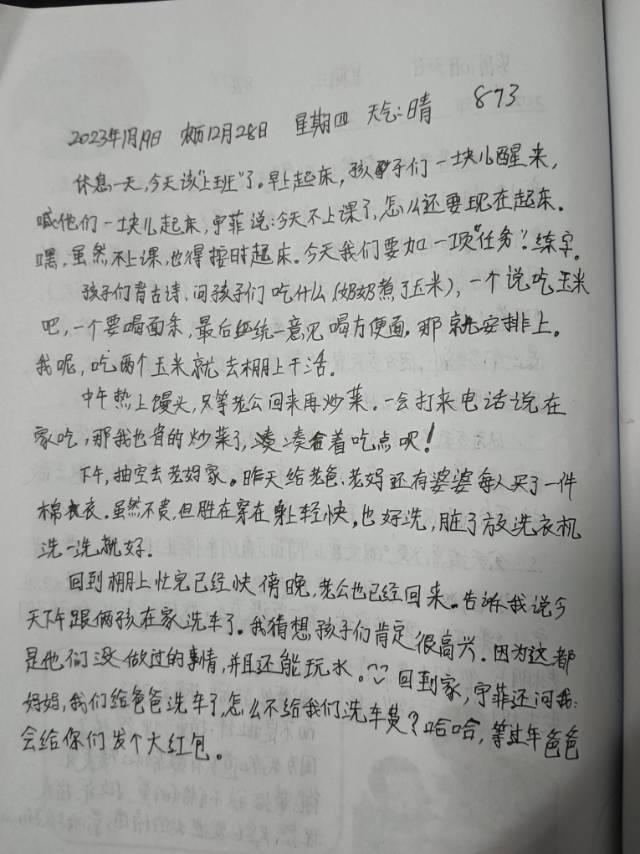 2023年1月19日 农历12月28日 星期四 天气:晴 873
休息一天,今天该“上班”了。早上起床,孩子们一块儿醒来,
喊他们一块儿起床,宁菲说:今天不上课了,怎么还要现在起床。
嘿,虽然不上课,也得按时起床。今天我们要加一项“任务”:练字。
孩子们背古诗,问孩子们吃什么(奶奶煮了玉米),一个说吃玉米
吧,一个要喝面条,最后经统一意见喝方便面,那就安排上。
我呢,吃两个玉米就去棚上干活。
中午热上馒头,只等老公回来再炒菜。一会打来电话说在
家吃,那我也省的炒菜了,凑凑合着吃点呗!
下午,抽空去老妈家。昨天给老爸、老妈还有婆婆每人买了一件
棉衣。虽然不贵,但胜在穿在身上轻快,也好洗,脏了放洗衣机
洗一洗就好.
回到棚上忙完已经快傍晚,老公也已经回来。告诉我说今
天下午跟俩孩在家洗车了。我猜想孩子们肯定很高兴.因为这都
是他们没做过的事情,并且还能玩水。回到家,宁菲还问我:
妈妈,我们给爸爸洗车了,怎么不给我们洗车费?哈哈,等过年爸爸
会给你们发个大红包。